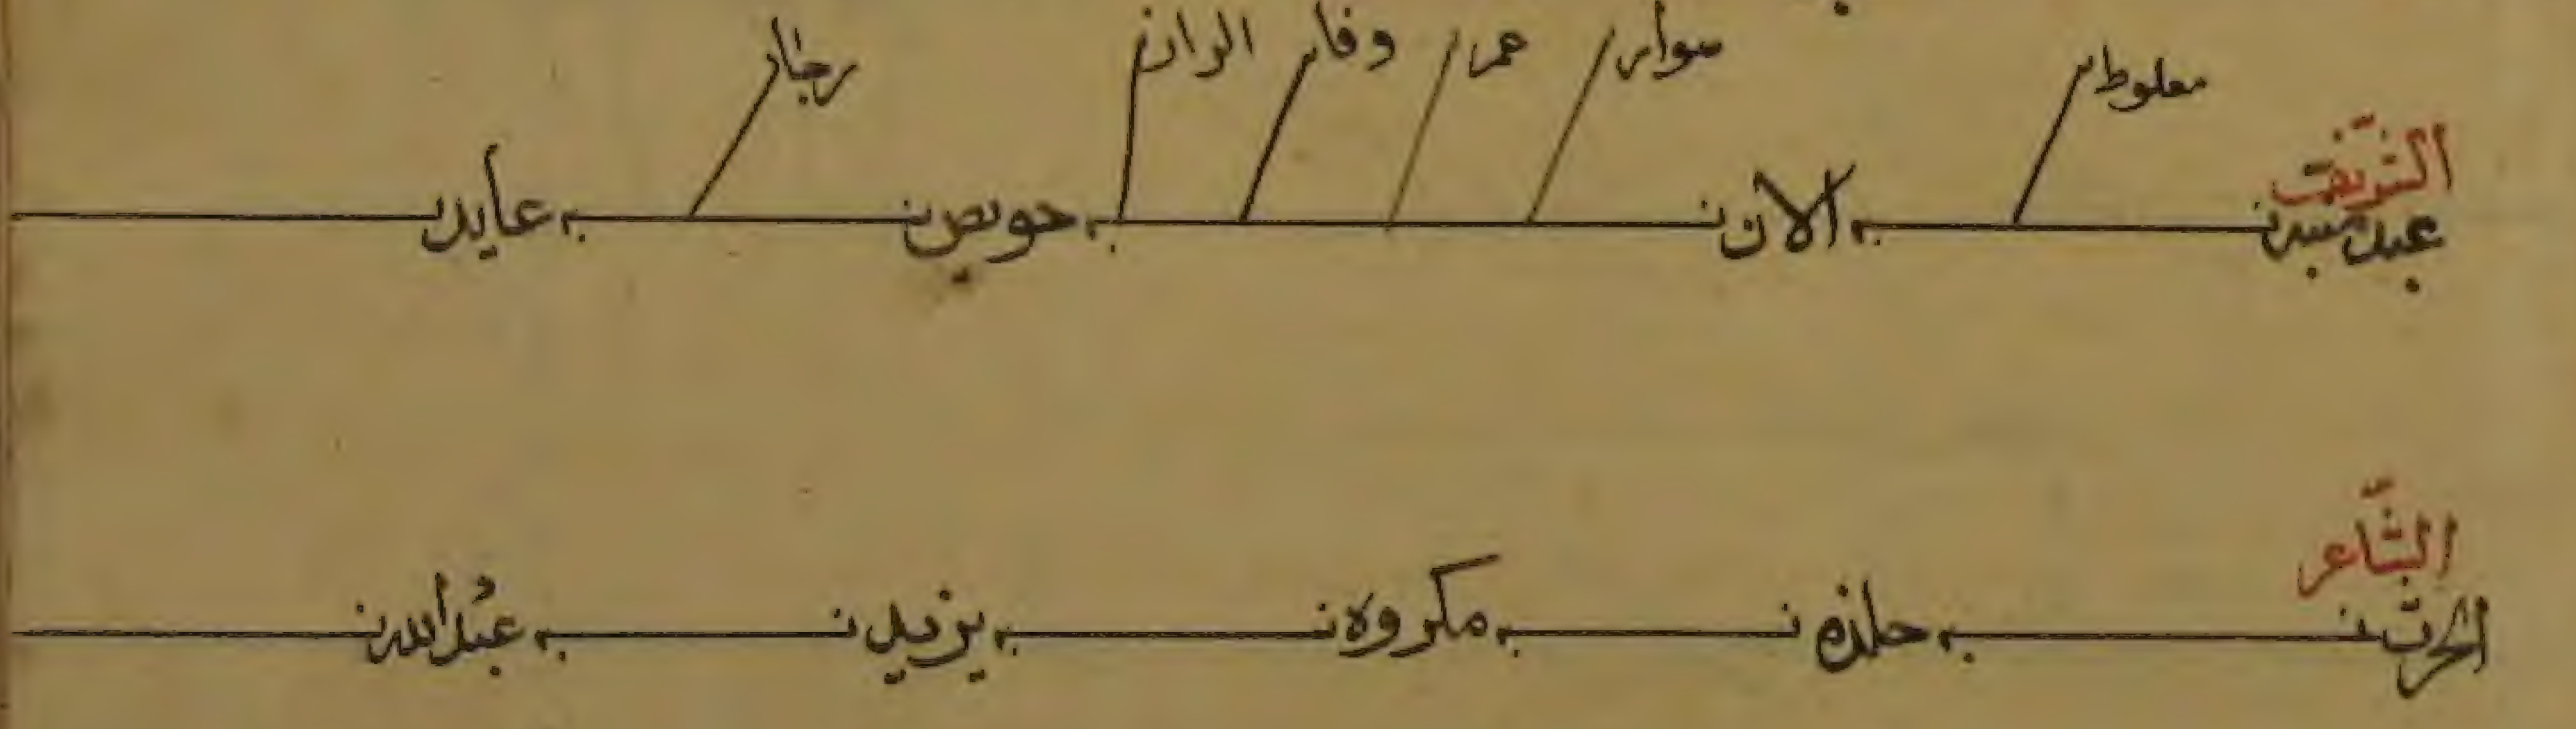 معلوط سوار عمر وفا الران رخبار
الشريف
عبد سيد بن الان بن حويص بن عايد
الشاعر
الحرث بن حلزه بن مكروه بن يزيد بن عبدالله بن